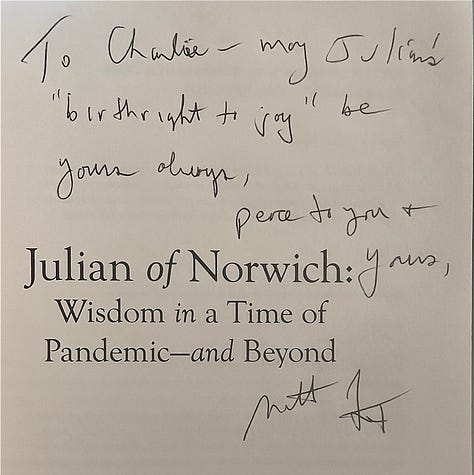 To Charlie – may Julian's
"birthright to joy" be
yours always,
peace to you +
yours,
Julian of Norwich:
Wisdom in a Time of
Pandemic—and Beyond
Matt Fox